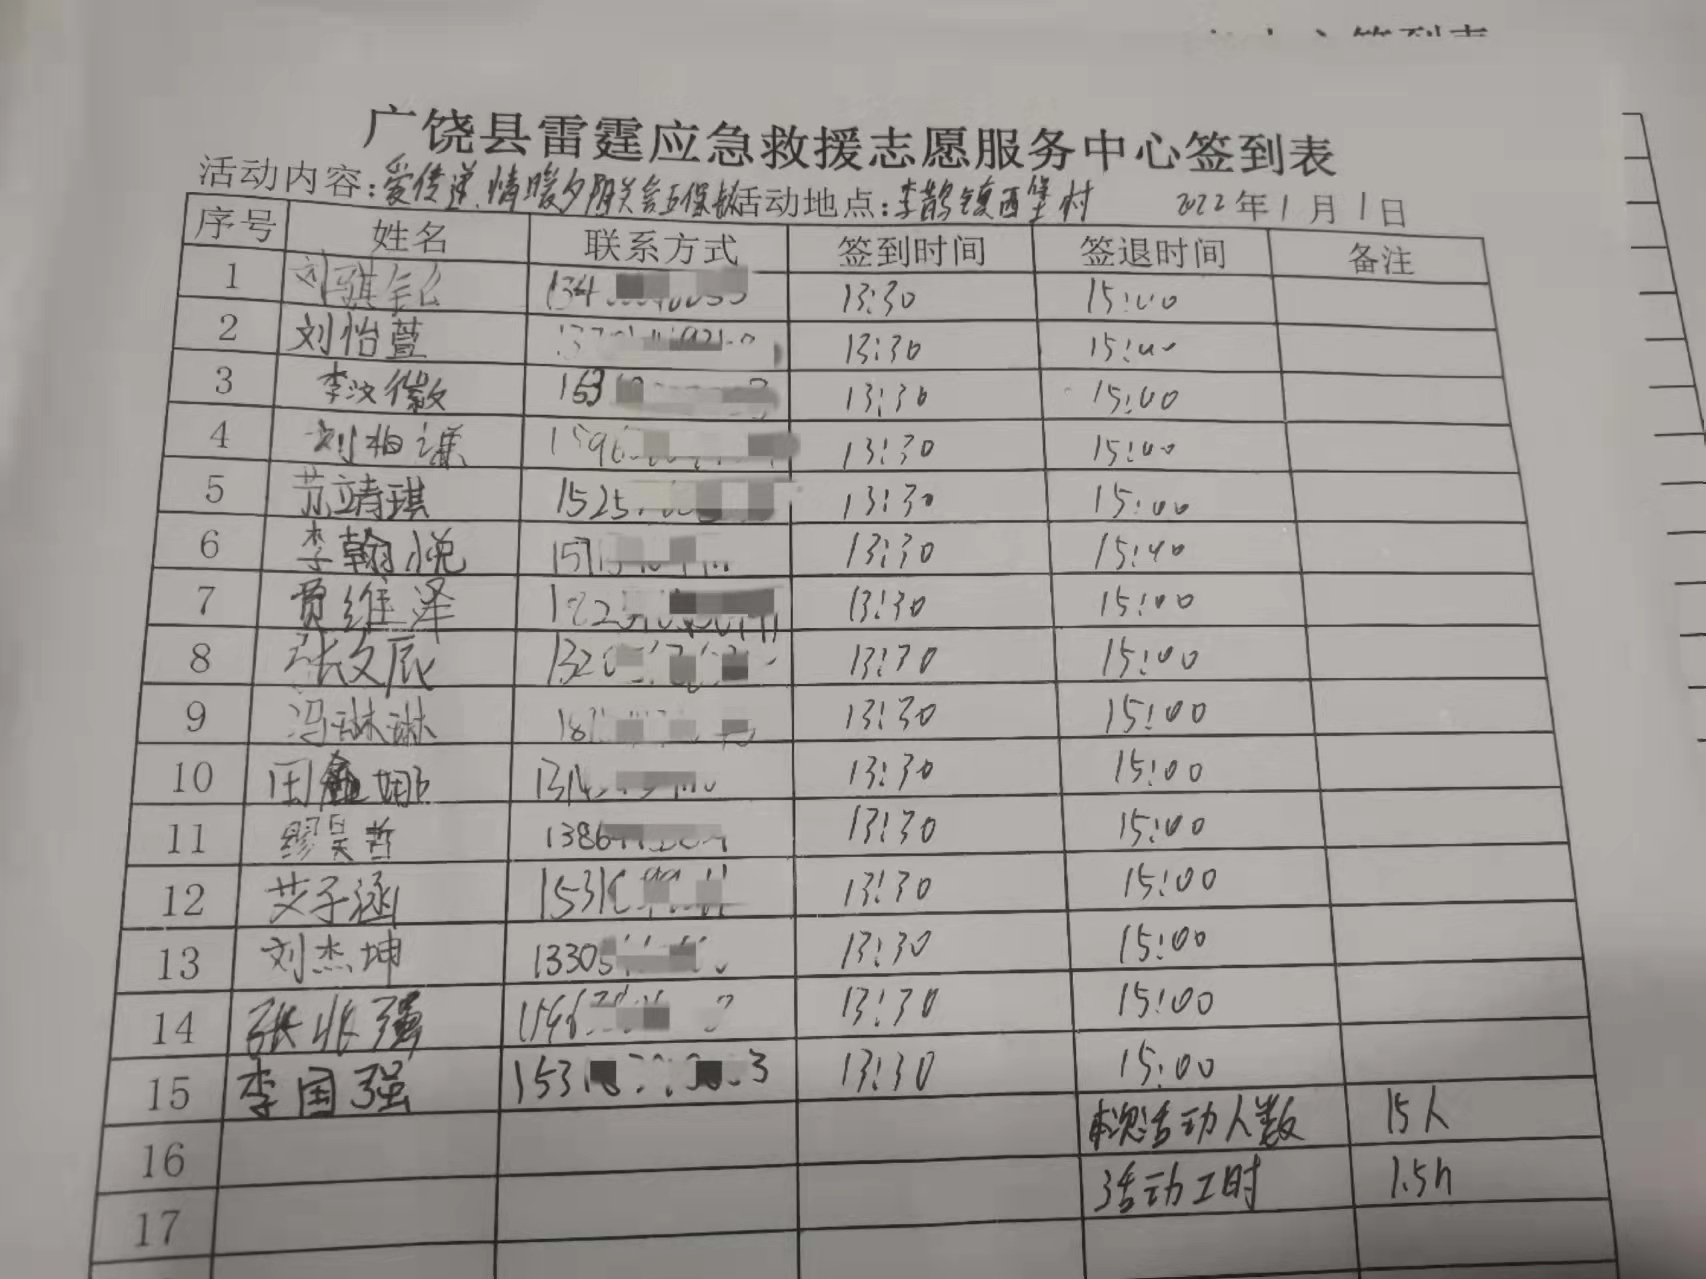 广饶县雷霆应急救援志愿服务中心签到表
活动内容:爱传递.情暖夕阳关爱五保 活动地点:李鹊镇西堡村 2022年1月1日
序号 姓名 联系方式 签到时间 签退时间 备注
1 刘骐 134 13:30 15:00
2 刘怡萱 13:30 15:00
3 李汶徽 153 13:30 15:00
4 刘相谦 1596 13:30 15:00
5 苏靖琪 1525 13:30 15:00
6 李翰悦 151 13:30 15:00
7 贾维泽 13:30 15:00
8 张文辰 132 13:30 15:00
9 冯琳琳 18 13:30 15:00
10 田鑫娜 131 13:30 15:00
11 缪昊哲 1386 13:30 15:00
12 艾子涵 1531 13:30 15:00
13 刘杰坤 13305 13:30 15:00
14 张兆强 1596 13:30 15:00
15 李国强 1531 3 13:30 15:00
本次活动人数 15人
16
活动工时 1.5h
17